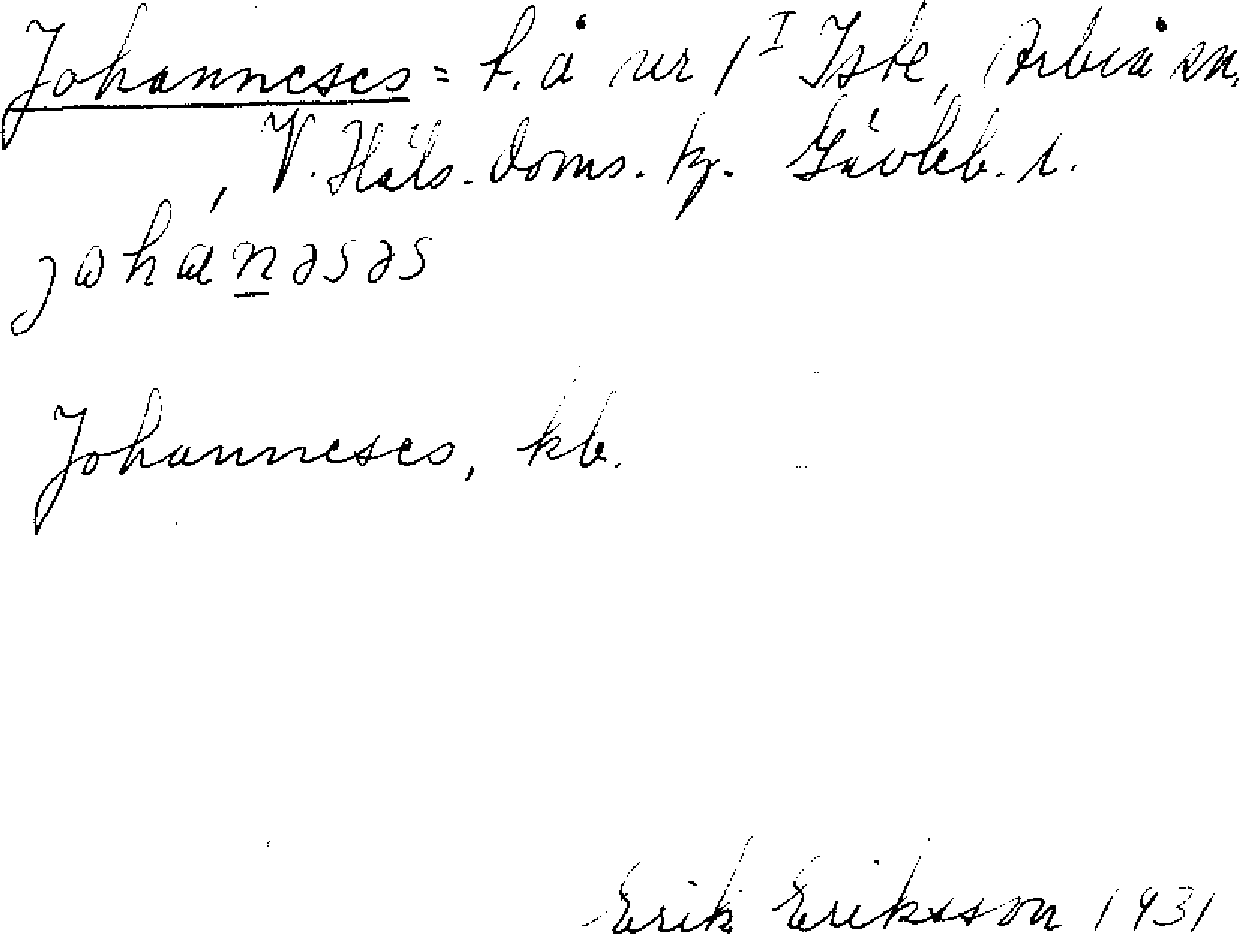 Johanneses = f. å nr 1^I Iste, Arbrå sn,
V. Häls. doms. kr. Gävleb. l.
johánəsəs
Johanneses, kb.
Erik Eriksson 1931